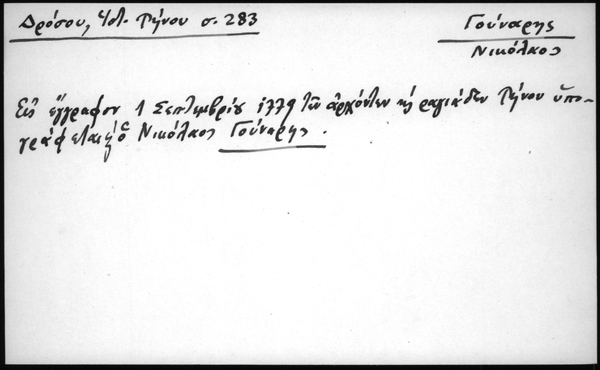 Δρόσου, Ἱστ. Τήνου σ. 283
Γούναρης
Νικόλαος
Εἰς ἔγγραφον 1 Σεπτεμβρίου 1779 τῶν ἀρχόντων κ ραγιάδων Τήνου ὑπο-
γράφεται κ ὁ Νικόλαος Γούναρης.